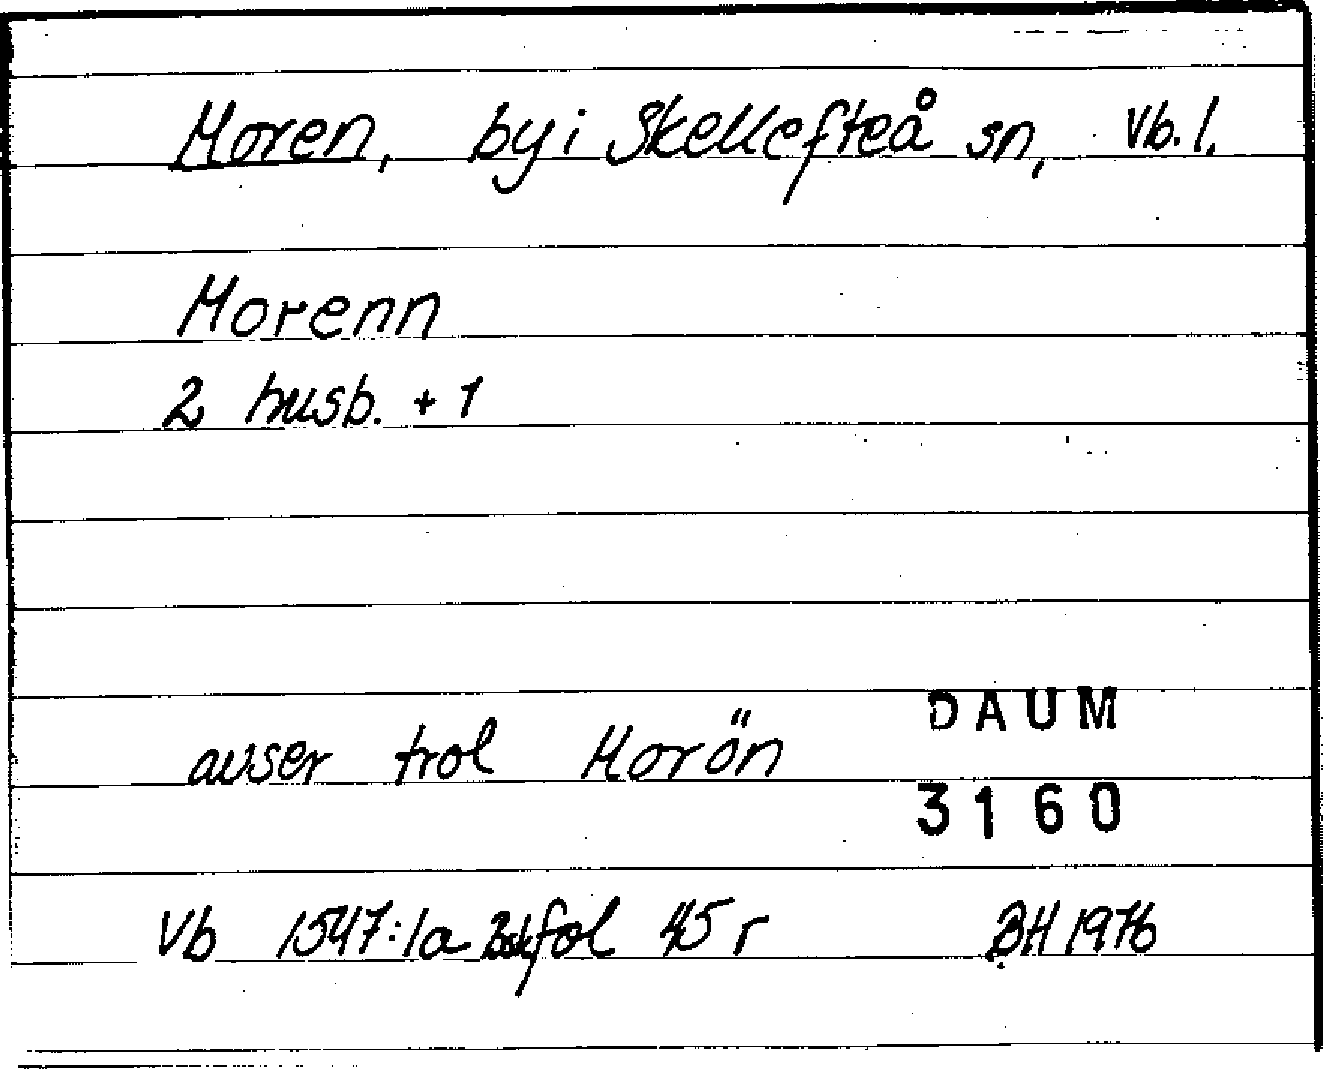 Moren, by i Skellefteå sn, Vb. l.
Morenn
2 husb. + 1
avser trol Morön
DAUM
3160
Vb 1547:1a fol 45 r BH 1976